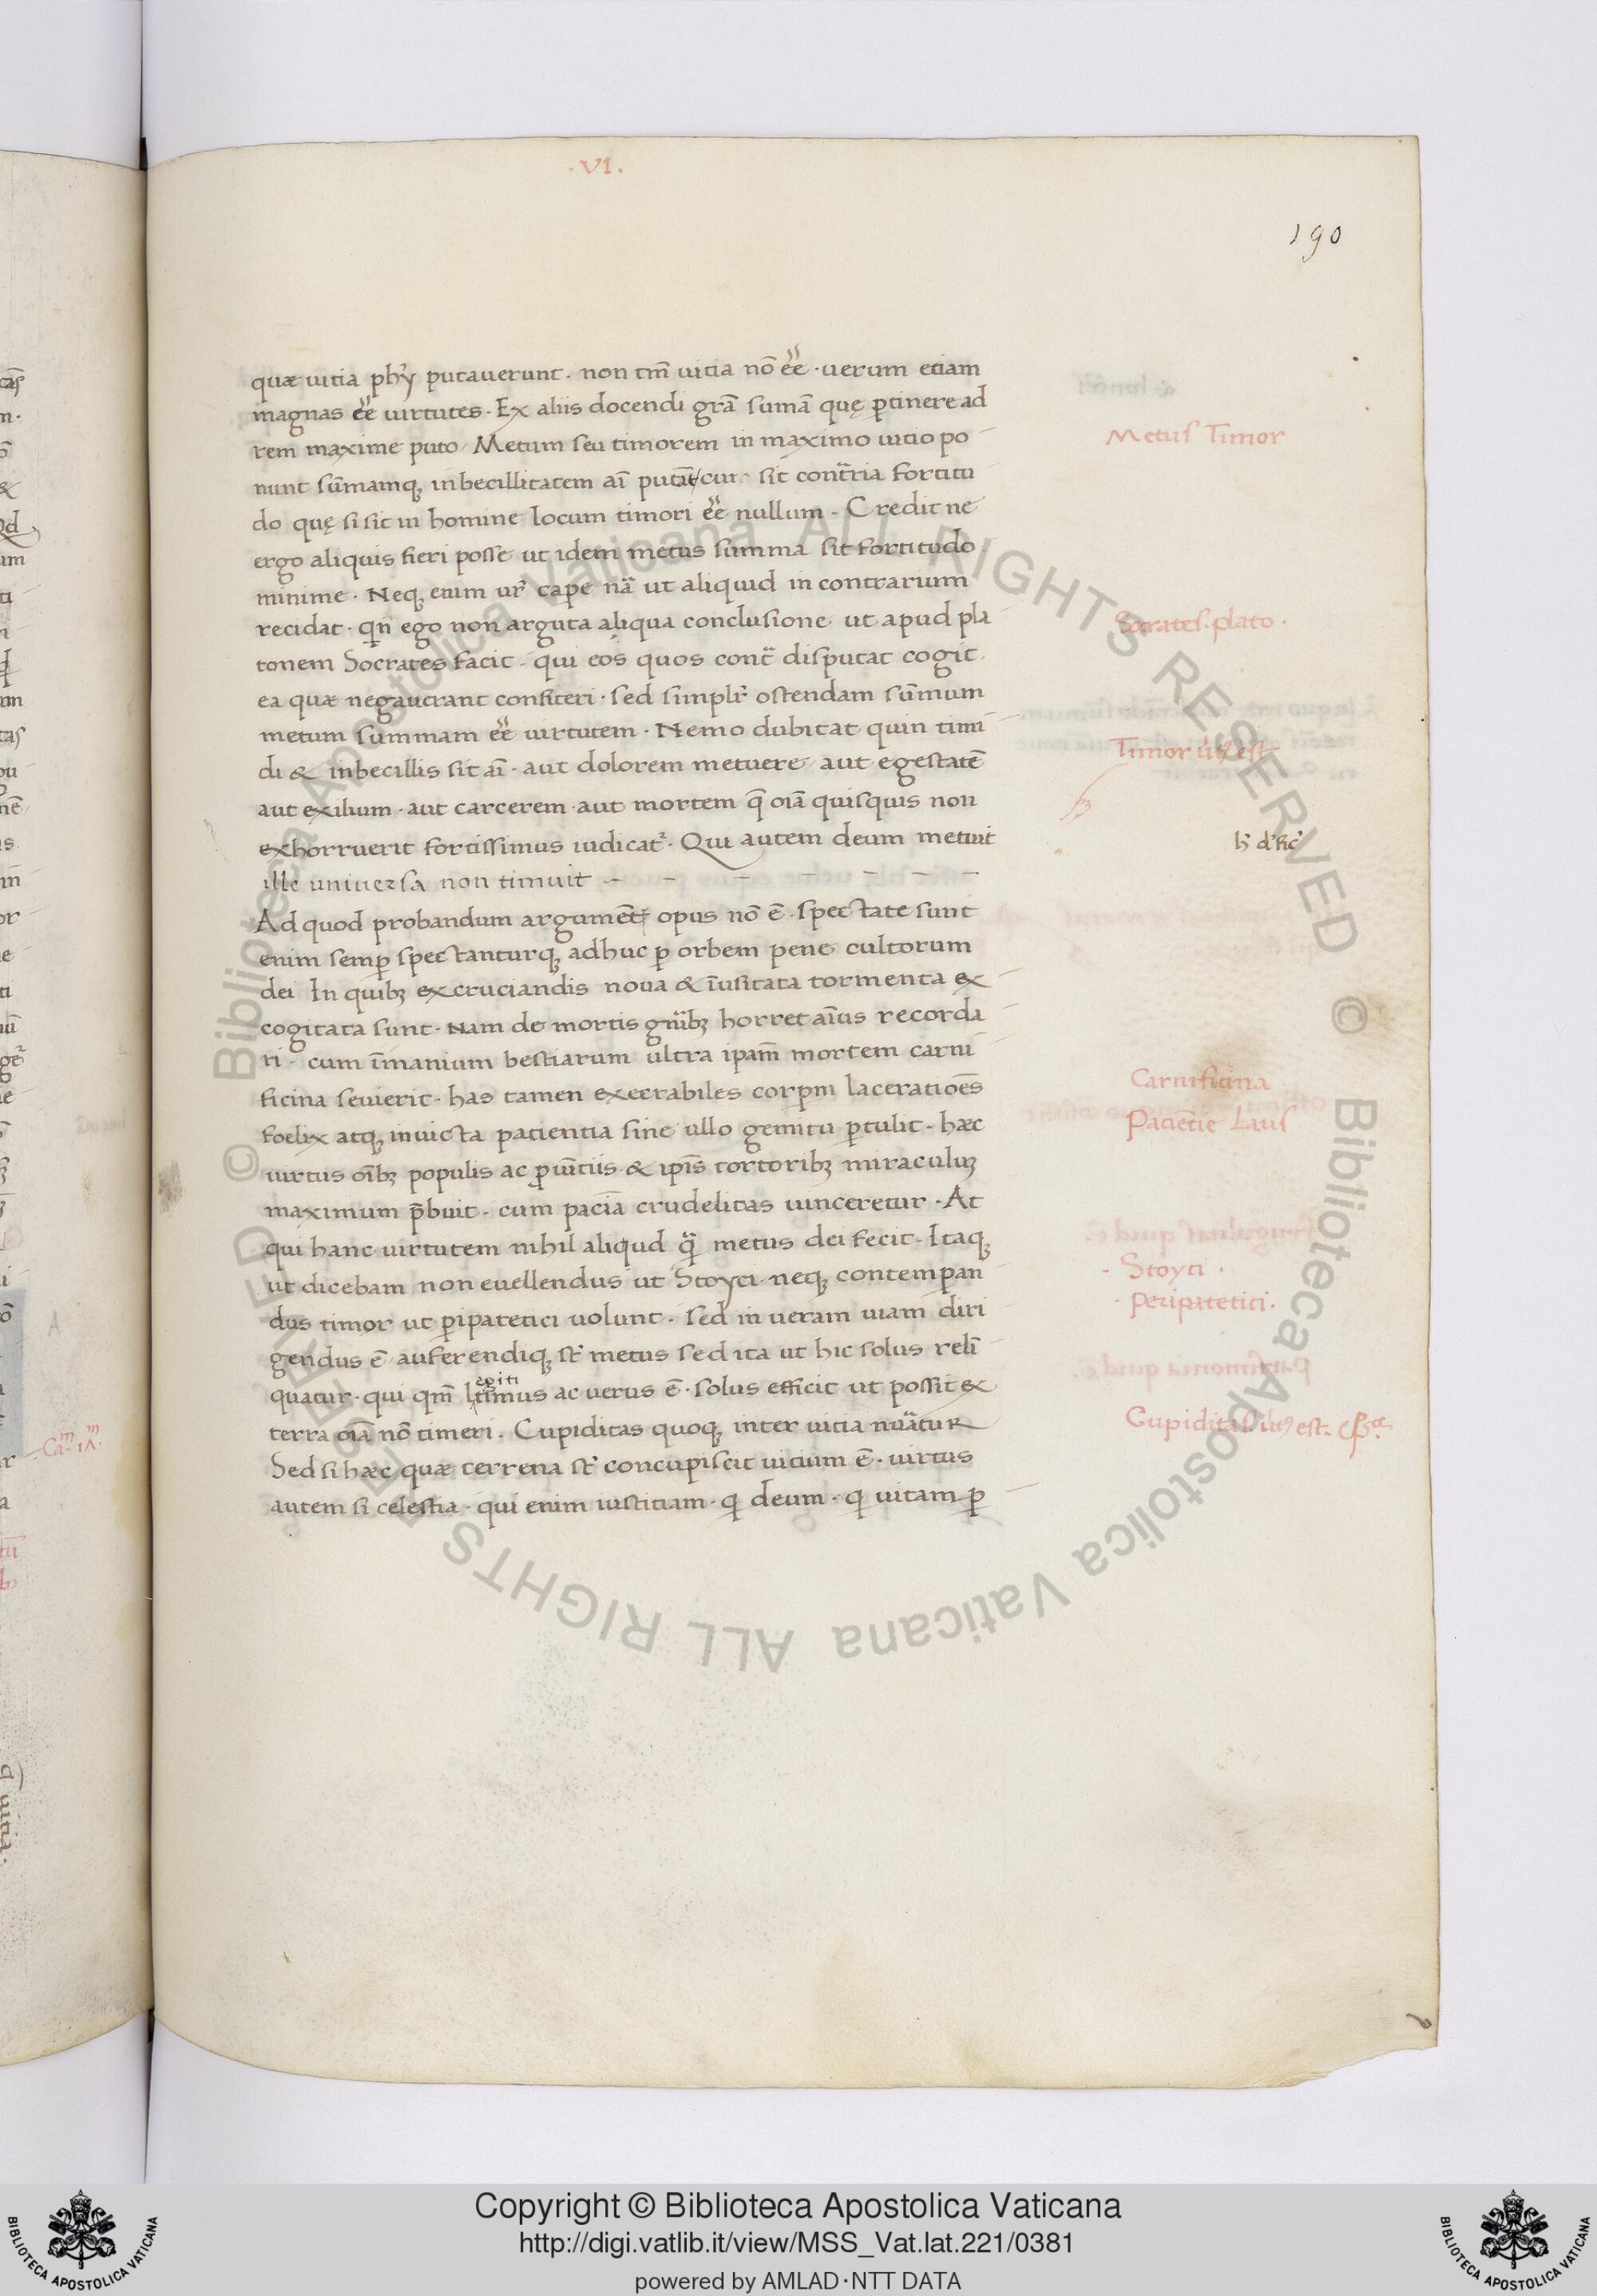 ·VI·
190
quæ uitia phỹ putauerunt · non tm̄ uitia nō ee͂ · uerum etiam
magnas ee͂ uirtutes · Ex aliis docendi grā sumā quę ꝑtinere ad
rem maxime puto / Metum seu timorem in maximo uitio po
nunt sūmamq; inbecillitatem aī putāt cui sit contr̄ria fortitu
do quę si sit in homine locum timori ee͂ nullum · Credit ne
ergo aliquis fieri posse ut idem metus summa sit fortitudo
minime · Neq; enim ur̄ cape nā ut aliquid in contrarium
recidat · qn̄ ego non arguta aliqua conclusione ut apud pla
tonem Socrates facit · qui eos quos cont̄ disputat cogit
ea quæ negauerant confiteri · sed simplr̄ ostendam sūmum
metum summam ee͂ uirtutem · Nemo dubitat quin timi
di & inbecillis sit aī · aut dolorem metuere / aut egestatē
aut exilium · aut carcerem · aut mortem q̄ oīa quisquis non
exhorruerit fortissimus iudicat̄ · Qui autem deum metuit
ille uniuersa non timuit — — — — — —
Ad quod probandum argumēt̄ opus nō ē · spectate sunt
enim semꝑ spectanturq; adhuc ꝑ orbem pene cultorum
dei In quib; excruciandis noua & īusitata tormenta ex
cogitata sunt · Nam de mortis gn̄ib; horret aīus recorda
ri · cum īmanium bestiarum ultra ipam̄ mortem carni
ficina seuierit · has tamen execrabiles corꝑm laceratioēs
foelix atq; inuicta patientia sine ullo gemitu ꝑtulit · hæc
uirtus oīb; populis ac ꝓuītiis & ipīs tortorib; miraculuȝ
maximum p̄buit · cum paciā crudelitas uinceretur · At
qui hanc uirtutem nihil aliqud q̄ metus dei fecit · Itaq;
ut dicebam non euellendus ut Stoyci · neq; contemꝑan
dus timor ut ꝑipatetici uolunt · sed in ueram uiam diri
gendus ē auferendiq; st̄ metus sed ita ut hic solus reli
egiti
quatur · qui qm̄ ltimus ac uerus ē · solus efficit ut possit ex
terra oīa nō timeri · Cupiditas quoq; inter uitia nūatur
Sed si hæc quæ terrena st̄ concupiscit uitium ē · uirtus
autem si celestia · qui enim iustitiam · qi deum · qi uitam ꝑ
Metus Timor
Socrates · plato ·
Timor est
Carnificina
Paciētie Laus
· Stoyci ·
· peripatetici ·
Cupiditas est
Copyright © Biblioteca Apostolica Vaticana
http://digi.vatlib.it/view/MSS_Vat.lat.221/0381
powered by AMLAD·NTT DATA
BIBLIOTECA APOSTOLICA VATICANA
BIBLIOTECA APOSTOLICA VATICANA